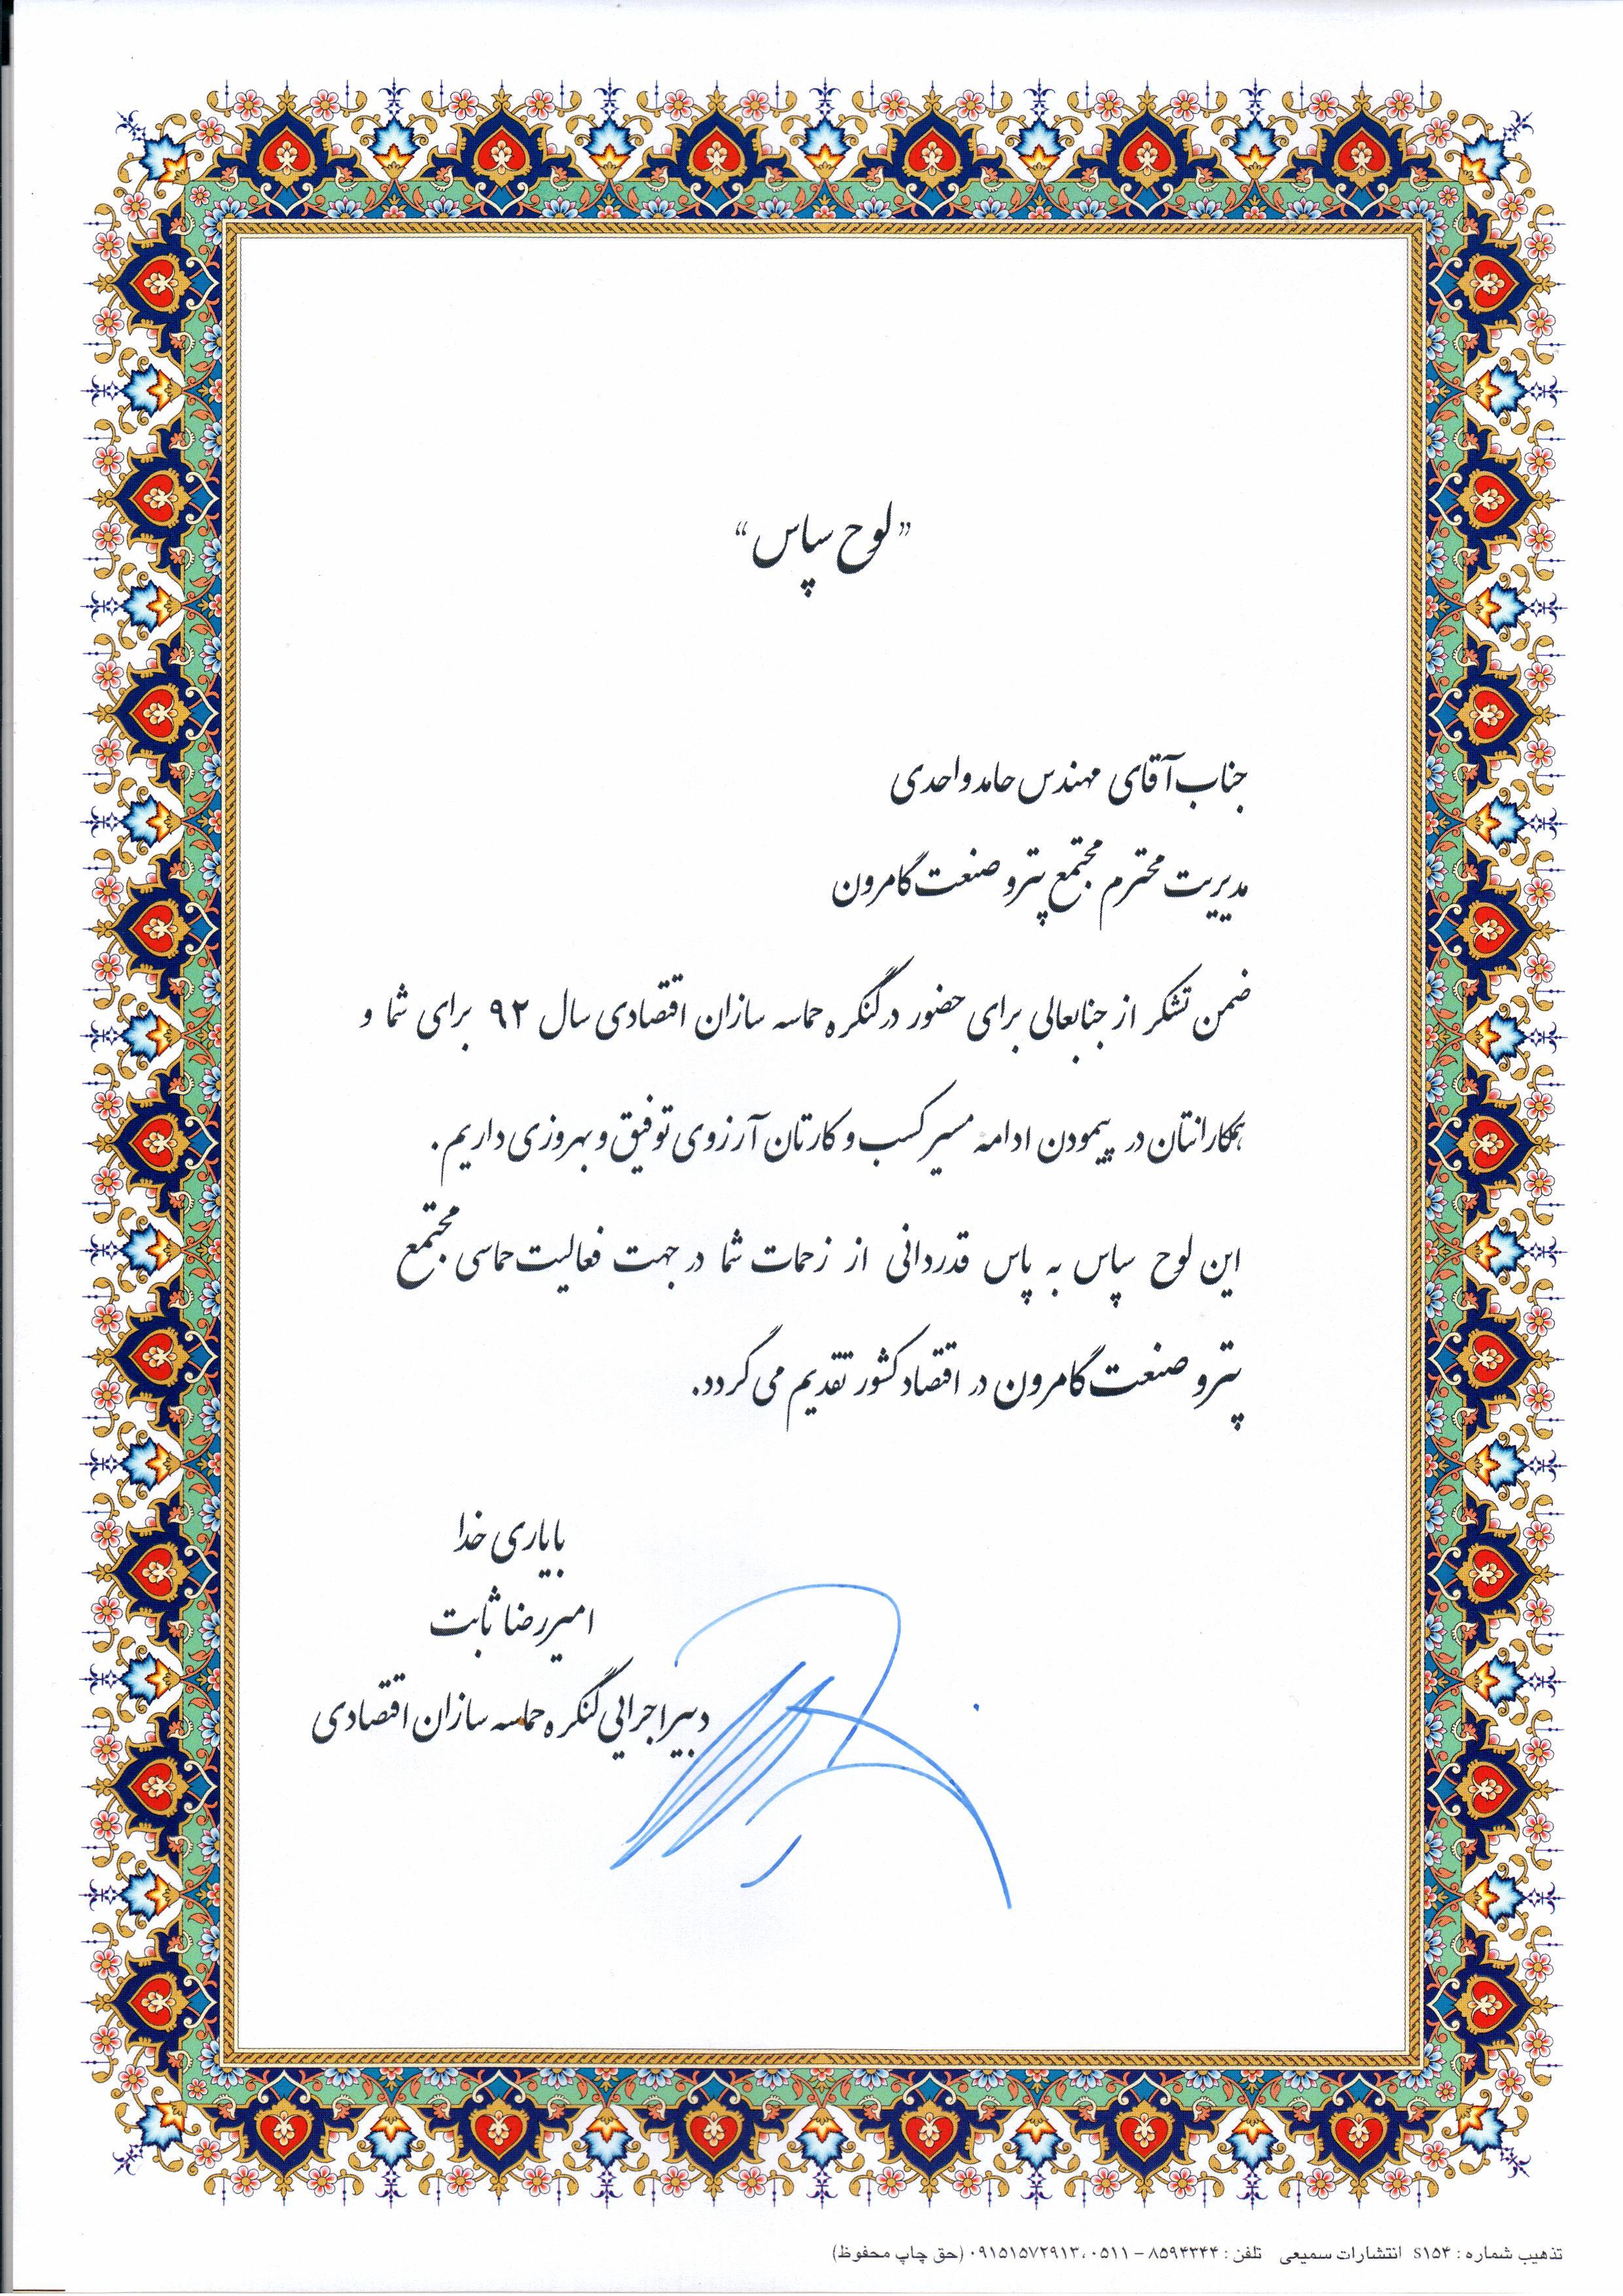 ”لوح سپاس“
جناب آقای مهندس حامد واحدی
مدیریت محترم مجتمع پترو صنعت گامرون
ضمن تشکر از جنابعالی برای حضور در کنگره حماسه سازان اقتصادی سال ۹۲ برای شما و
همکارانتان در پیمودن ادامه مسیر کسب و کارتان آرزوی توفیق و بهروزی داریم.
این لوح سپاس به پاس قدردانی از زحمات شما در جهت فعالیت حماسی مجتمع
پترو صنعت گامرون در اقتصاد کشور تقدیم می گردد.
با یاری خدا
امیررضا ثابت
دبیر اجرایی کنگره حماسه سازان اقتصادی
تذهیب شماره : S۱۵۴ انتشارات سمیعی تلفن : ۸۵۹۴۳۴۴ – ۰۵۱۱، ۰۹۱۵۱۵۷۲۹۱۳ (حق چاپ محفوظ)